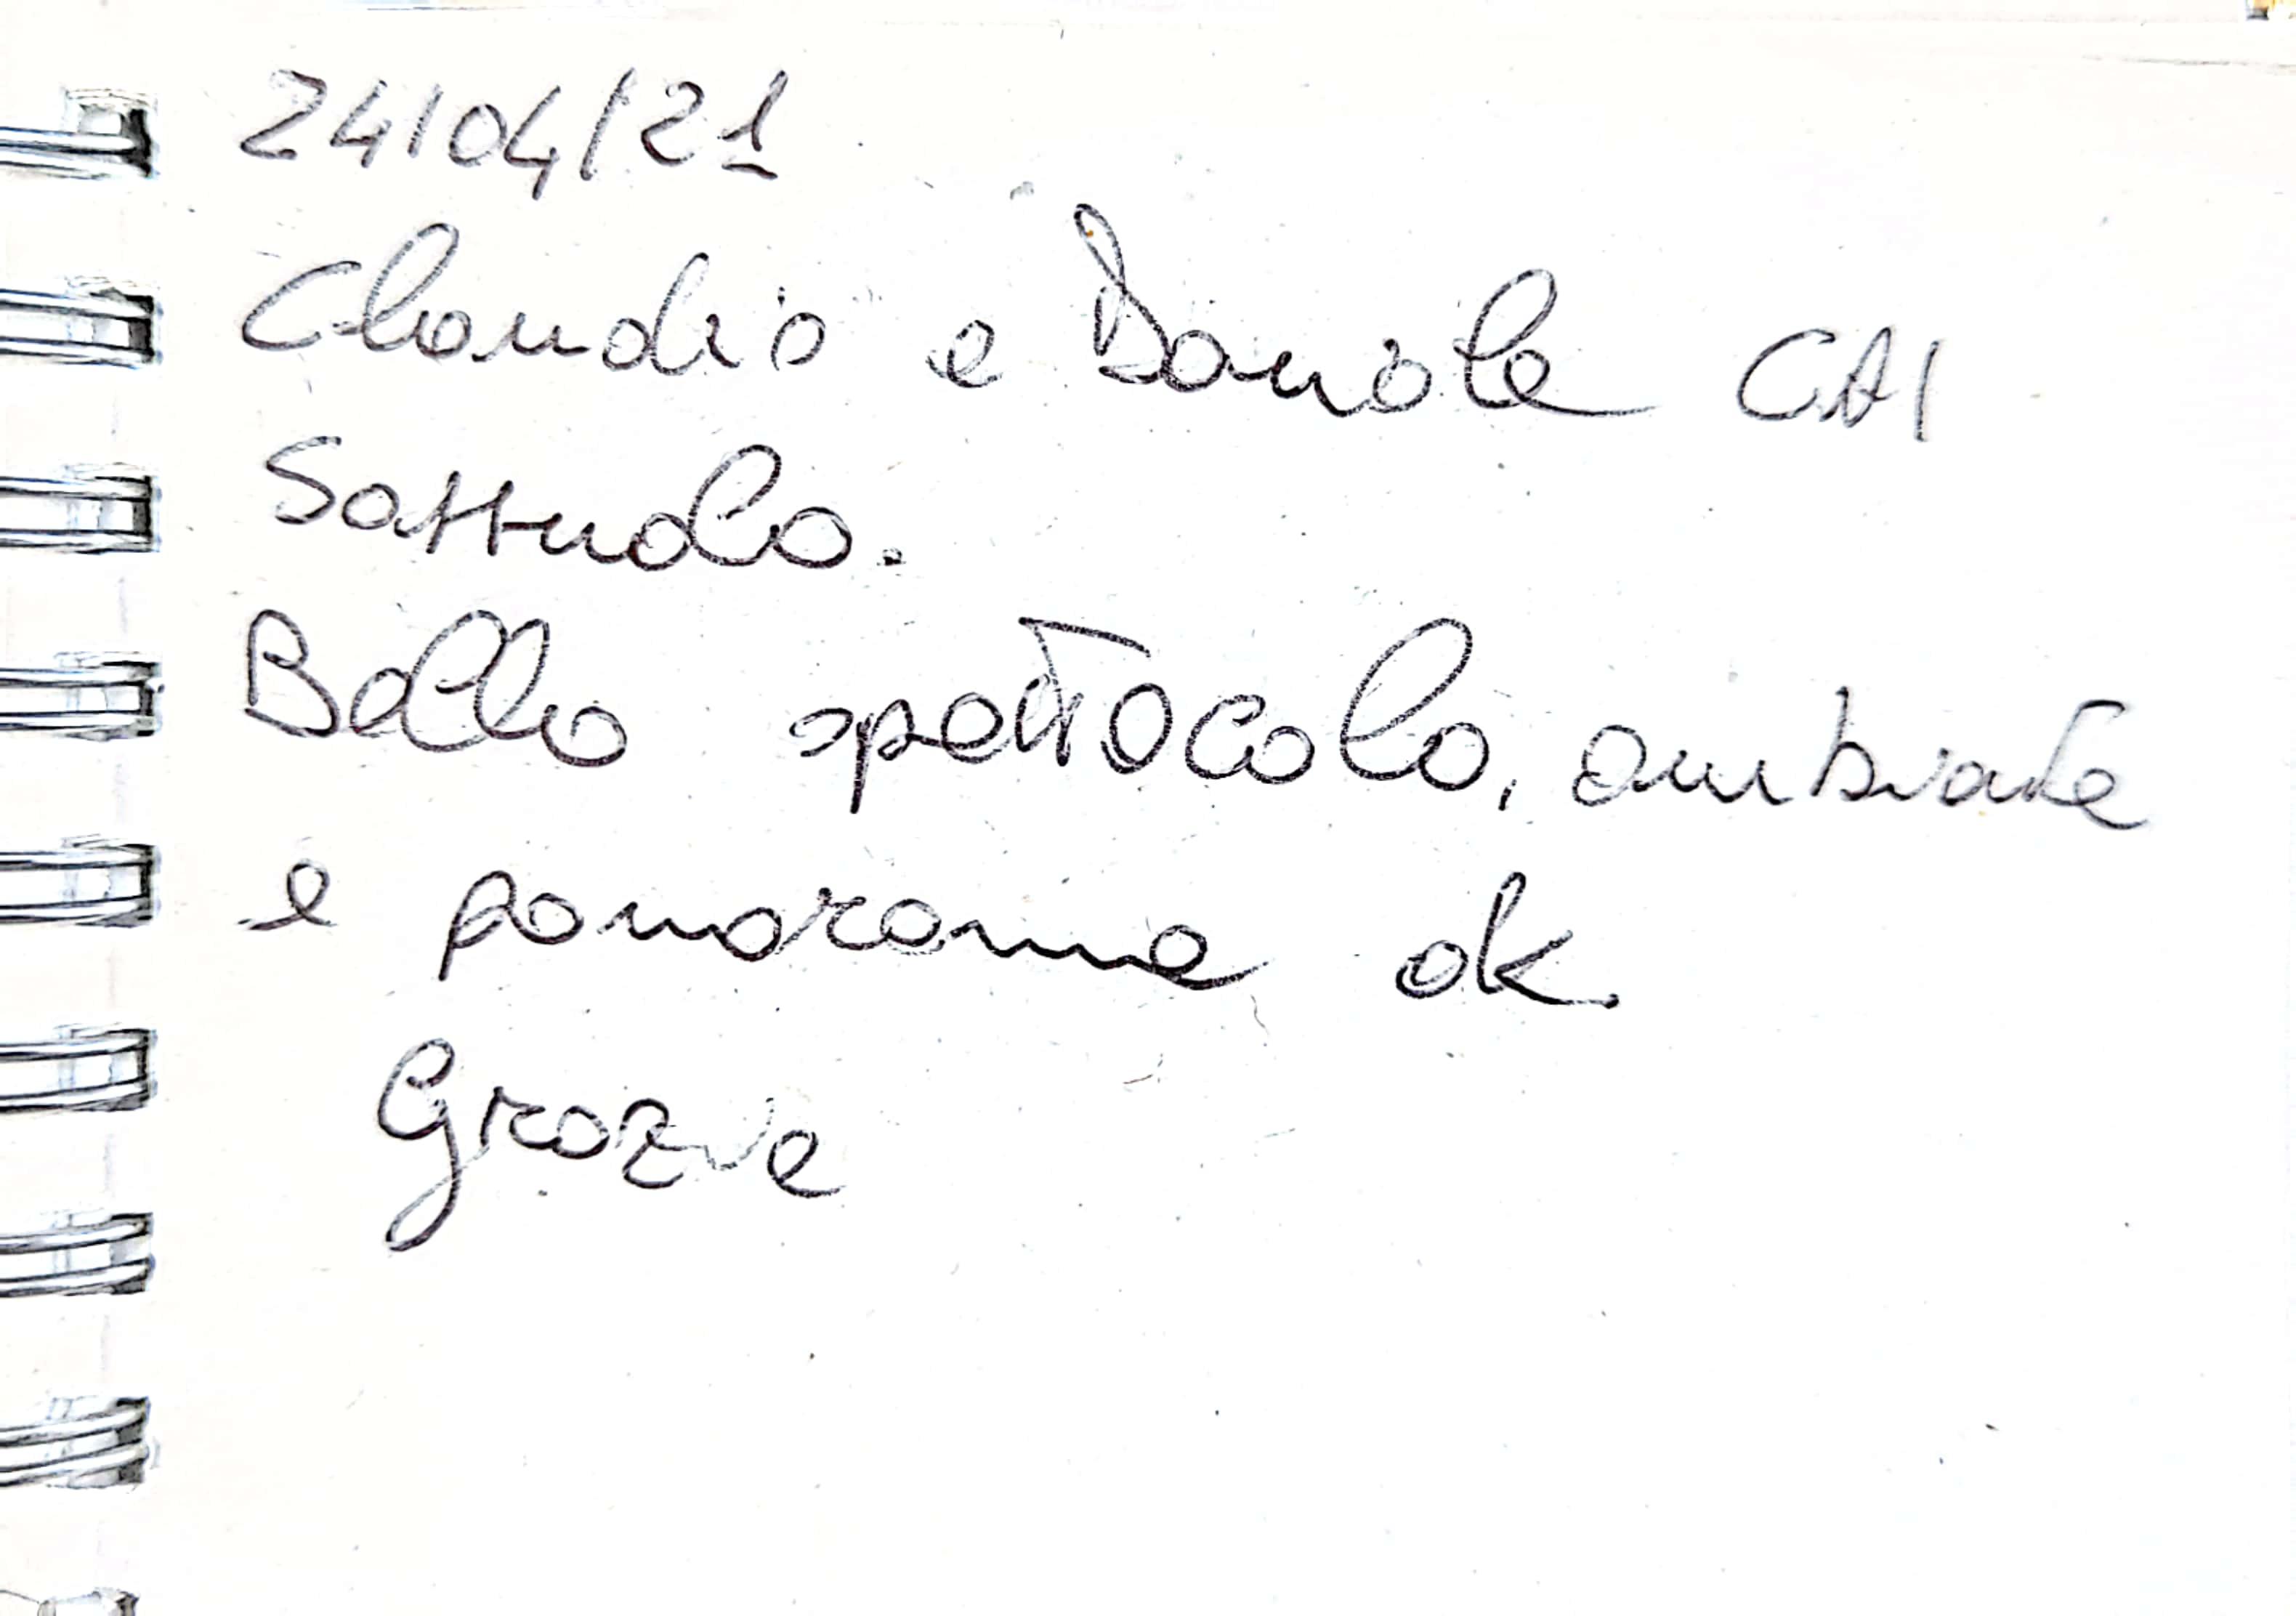 24/04/21
Claudio e Daniele CAI
Sassuolo.
Bello spettacolo, ambiente
e panorama ok
Grazie